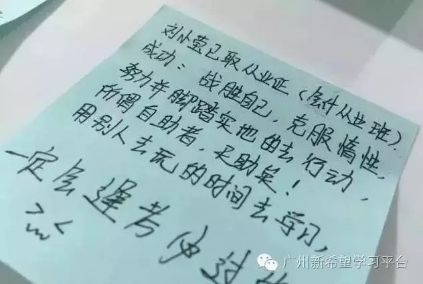 刘小莹已取从业证(会计从业班)
成功：战胜自己，克服惰性，
努力并脚踏实地的去行动，
所谓自助者，天助矣！
用别人去玩的时间去学习，
一定会逢考必过
广州新希望学习平台